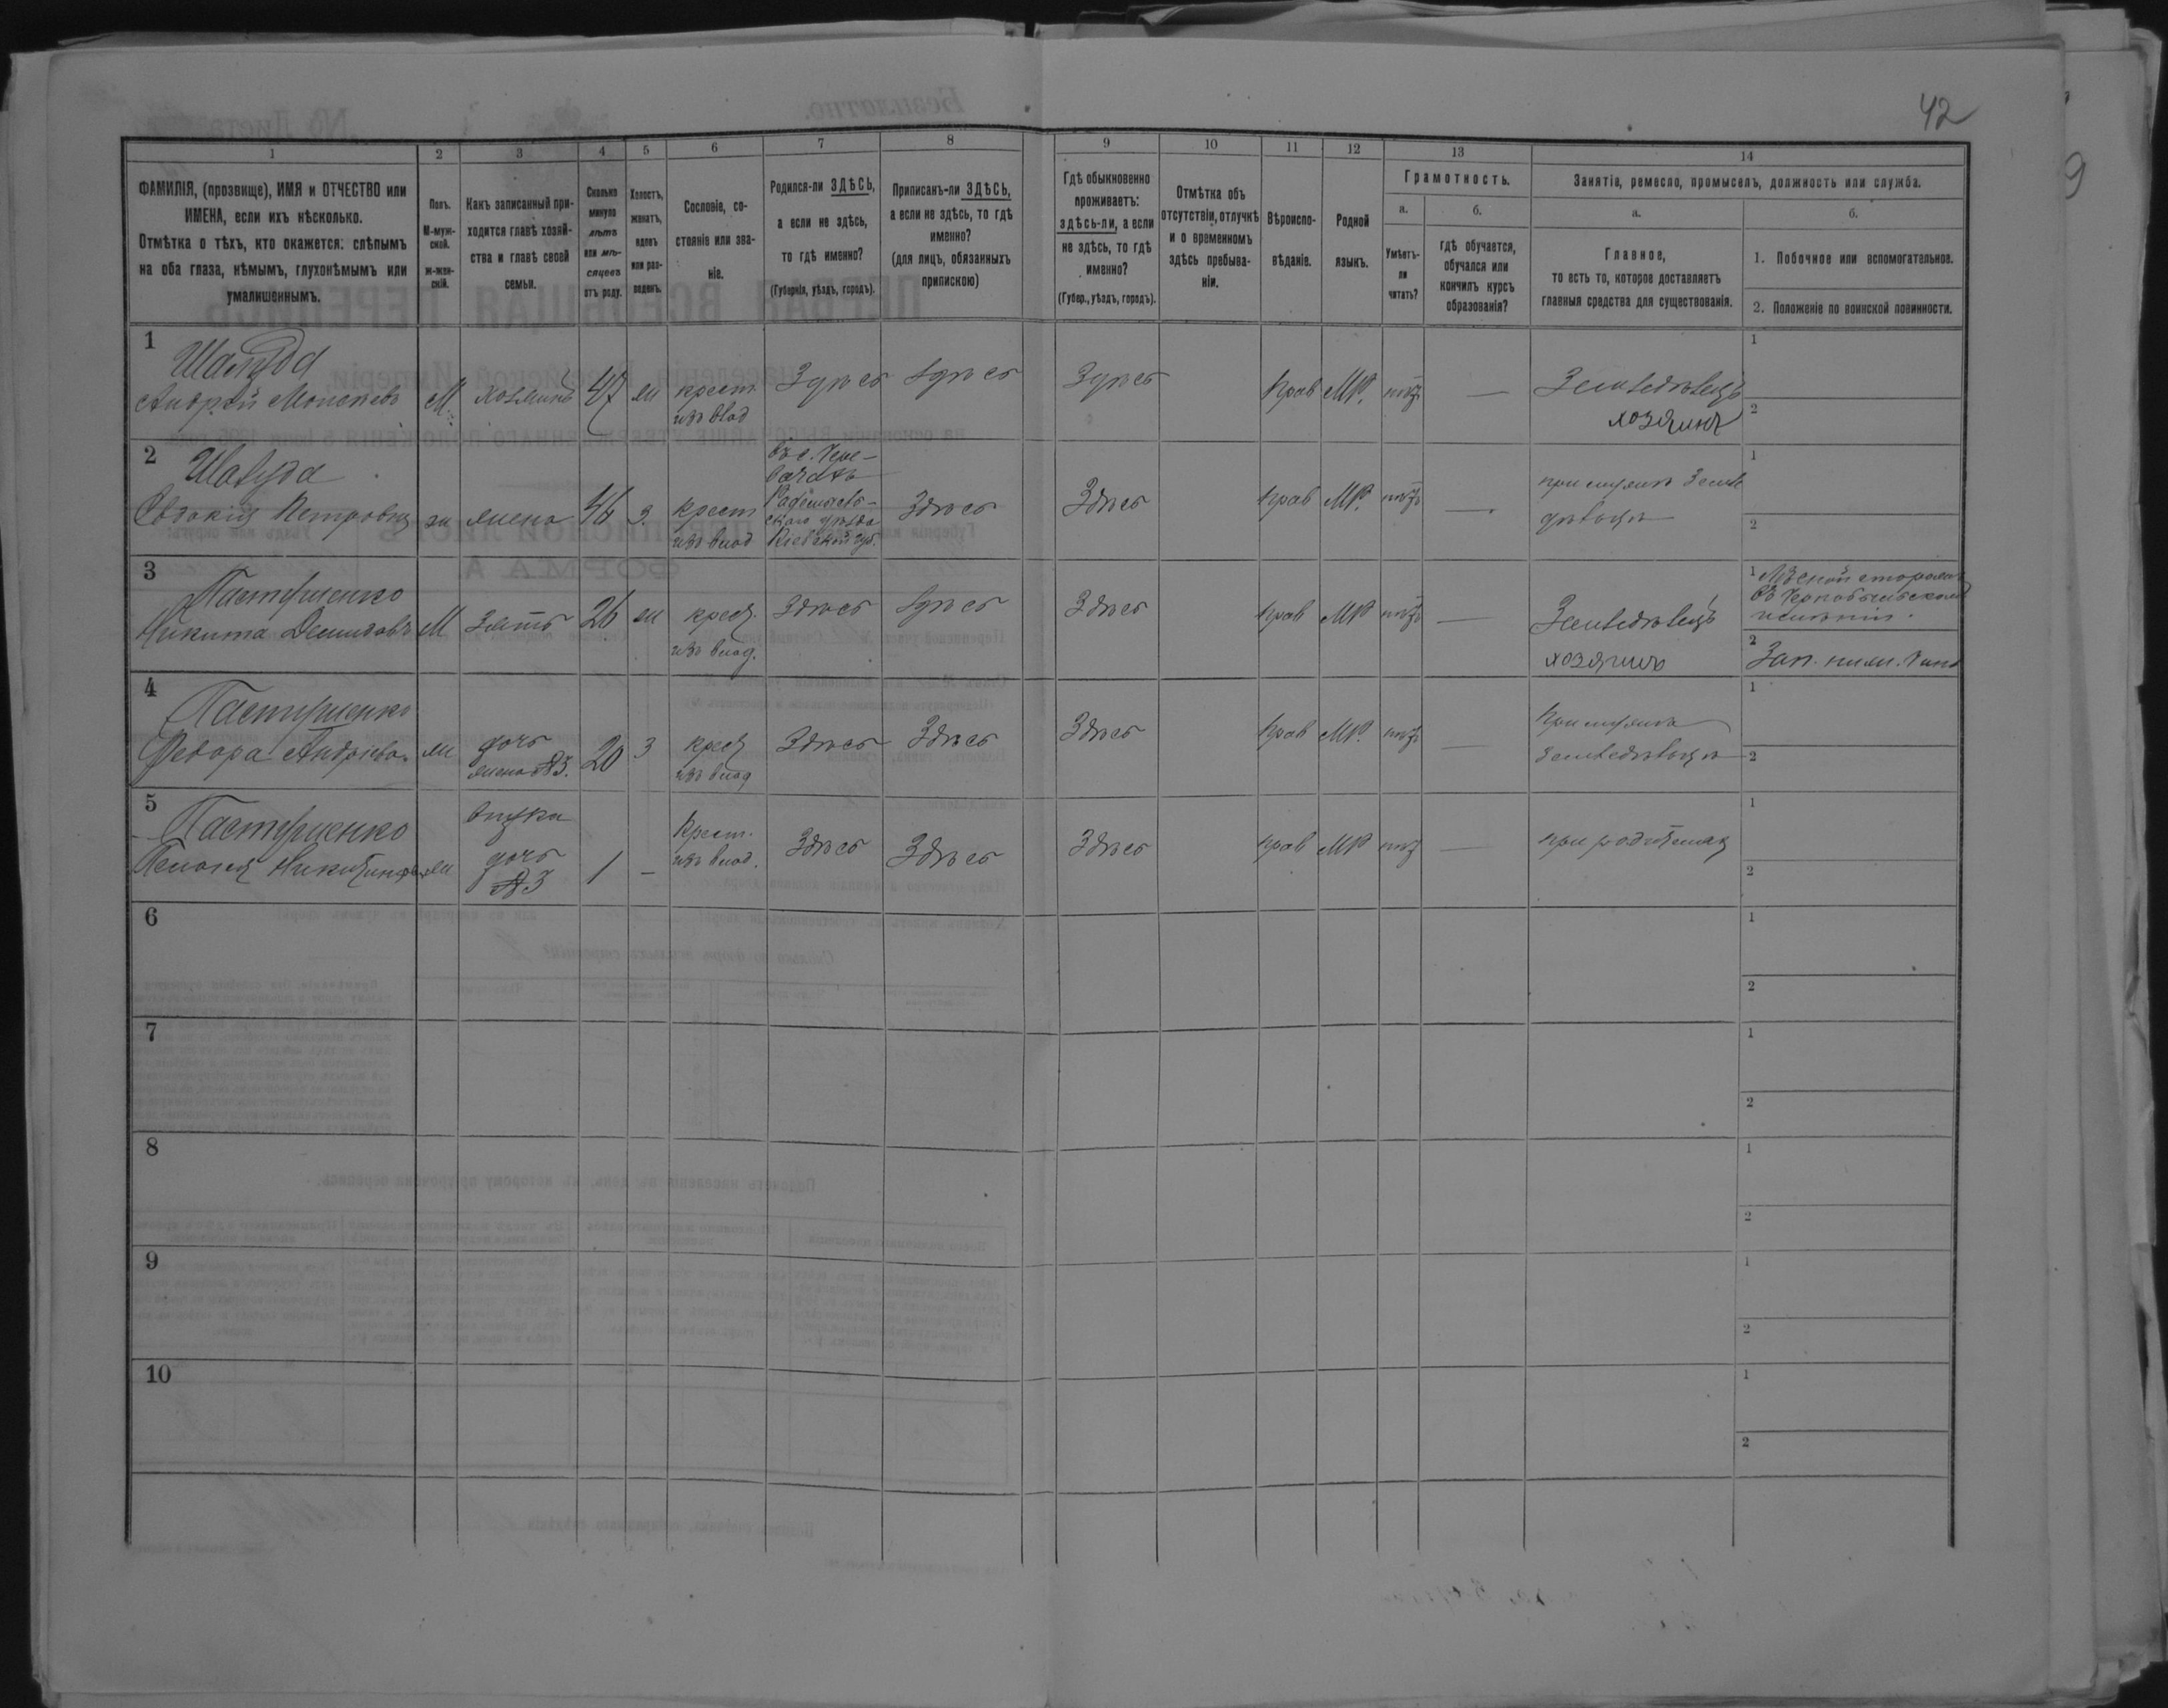 42
1 2 3 4 5 6 7 8 9 10 11 12 13 14
ФАМИЛІЯ, (прозвище), ИМЯ и ОТЧЕСТВО или
ИМЕНА, если ихъ нѣсколько.
Отмѣтка о тѣхъ, кто окажется: слѣпымъ
на оба глаза, нѣмымъ, глухонѣмымъ или
умалишеннымъ.
Полъ.
М-муж-
ской.
ж-жен-
скій.
Какъ записанный при-
ходится главѣ хозяй-
ства и главѣ своей
семьи.
Сколько
минуло
лѣтъ
или мѣ-
сяцевъ
отъ роду.
Холостъ,
женатъ,
вдовъ
или раз-
веденъ.
Сословіе, со-
стояніе или зва-
ніе.
Родился-ли ЗДѢСЬ,
а если не здѣсь,
то гдѣ именно?
(Губернія, уѣздъ, городъ).
Приписанъ-ли ЗДѢСЬ,
а если не здѣсь, то гдѣ
именно?
(для лицъ, обязанныхъ
припискою)
Гдѣ обыкновенно
проживаетъ:
здѣсь-ли, а если
не здѣсь, то гдѣ
именно?
(Губер., уѣздъ, городъ).
Отмѣтка объ
отсутствіи, отлучкѣ
и о временномъ
здѣсь пребыва-
ніи.
Вѣроиспо-
вѣданіе.
Родной
языкъ.
Грамотность.
а.
Умѣетъ-
ли
читать?
б.
гдѣ обучается,
обучался или
кончилъ курсъ
образованія?
Занятіе, ремесло, промыселъ, должность или служба.
а.
Главное,
то есть то, которое доставляетъ
главныя средства для существованія.
б.
1. Побочное или вспомогательное.
2. Положеніе по воинской повинности.
1
Андрей
М хозяинъ 47 ж крест
изъ влад
Здѣсь Здѣсь Здѣсь Прав МР. нѣтъ —
Земледѣлецъ
хозяинъ
1
2
2
Шавуда
Евдокія Петровна
ж жена 46 з. крест
изъ влад
въ с.
Радомысль-
скаго уѣзда
Кіевской губ.
Здѣсь Здѣсь Прав МР. нѣтъ —
при мужѣ земле
дѣльцѣ
1
2
3
Пастушенко
Никита Демидовъ
М Зять 26 ж крест.
изъ влад.
Здѣсь Здѣсь Здѣсь Прав МР нѣтъ —
Земледѣлецъ
хозяинъ
1 Лѣсной сторожъ
въ Чернобыльскомъ
имѣніи.
2 Зап.
4
Пастушенко
Андріева
ж дочь
жена №3.
20 з крест
изъ влад
Здѣсь Здѣсь Здѣсь Прав МР. нѣтъ —
При мужѣ
земледѣльцѣ
1
2
5
Пастушенко
ж внучка
дочь
№3
1 — Крест.
изъ влад.
Здѣсь Здѣсь Здѣсь прав МР нѣт
при родителяхъ
1
2
6
1
2
7
1
2
8
1
2
9
1
2
10
1
2